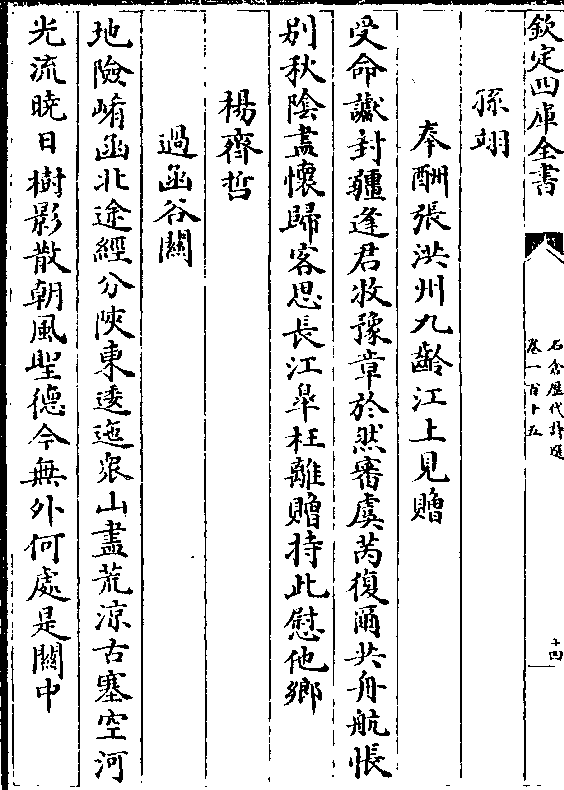 欽定四庫全書
石倉歷代詩選
卷一百十五
十四
孫翊
奉酬張洪州九齡江上見贈
受命讞封疆逢君牧豫章於然審虞芮復爾共舟航悵
別秋陰盡懷歸客思長江皐枉離贈持此慰他鄉
楊齊哲
過函谷關
地險崤函北途經分陜東逶迤衆山盡荒涼古塞空河
光流曉日樹影散朝風聖德今無外何處是關中